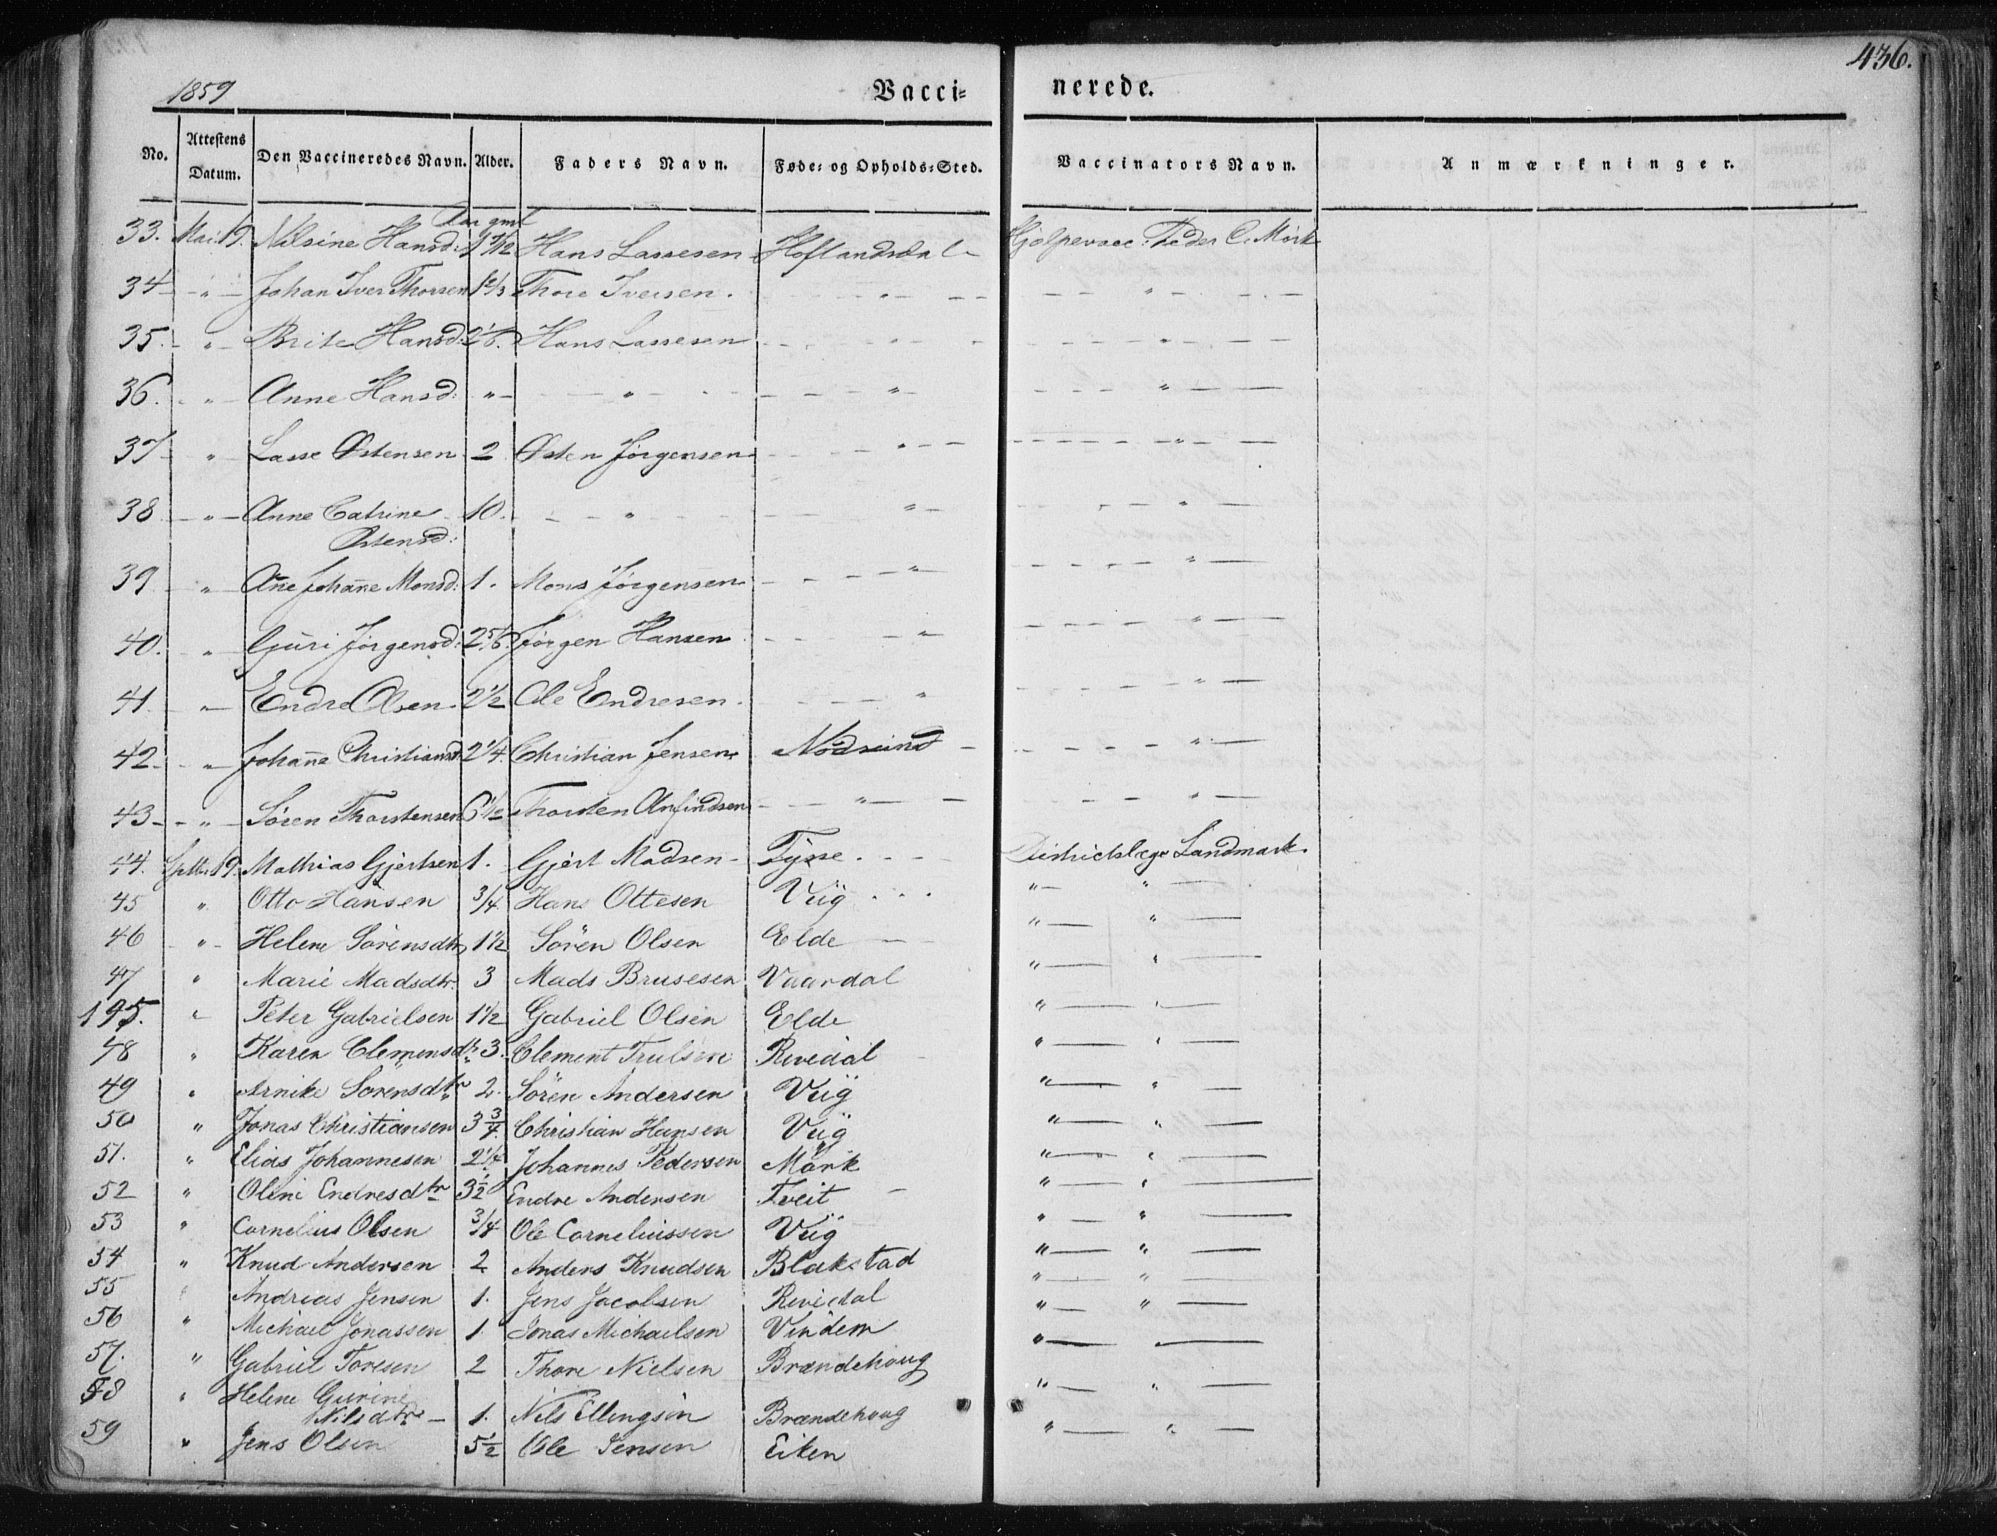 436.
1859 Vacci- nerede.
No. Attestens Datum. Den Vaccineredes Navn. Alder. Faders Navn. Føde- og Opholds-Sted. Vaccinators Navn. Anmærkninger.
Aar gml
33. Mai 19. Nilsine Hansd: 1 1/12 Hans Lassesen Hoflandsdal - Hjælpevac. Peder C. Mörk
34 - " - Johan Iver Thorsen 1 2/3 Thore Iversen. - " - - - " - -
35. - " - Brite Hansd: 2 1/6. Hans Lassesen - " - - " -
36. - " - Anne Hansd: " - - " - - " - - " -
37 - " - Lasse Østensen 2 Østen Jörgensen - " - - - " -
38 - " - Anne Catrine Østensd: 10. - " - " - - " -
39 - " - Ane Johanne Monsd: 1. Mons Jörgensen - " - " -
40. " - Guri Jörgensd: 2 5/6. Jörgen Hansen - " - " -
41 " - Endre Olsen 2 1/2 Ole Endresen. - " - " -
42 - " - Johanne Christiansd. 2 1/4. Christian Jensen Nödseind - - " -
43 - - " - Sören Thorstensen 6 1/2 Thorsten Anfindsen - " - - - " -
44. Septbr. 19. Mathias Gjertsen 1. Gjert Madsen - Tysse. - - Districtslæge Landmark.
45 " Otto Hansen 3/4 Hans Ottesen Viig . . . " - " -
46 - " - Helene Sörensdtr 1 1/2 Sören Olsen Elde - " - " -
47 " Marie Madsdtr. 3 Mads Brusesen Vaardal " - " -
195. " Peter Gabrielsen 1 1/2 Gabriel Olsen Elde " - " -
48 " Karen Clemensdtr 3. Clement Trulsen Revedal " - " -
49 " Arnike Sörensdtr 2. Sören Andersen Viig " - " -
50 " Jonas Christiansen 3 3/4. Christian Hansen Viig " - " -
51. " Elias Johannesen 2 1/4 Johannes Pedersen Mörk " - " -
52 " Oline Endresdtr 3 1/2 Endre Andersen Tveit - " - " -
53 " Cornelius Olsen 3/4 Ole Corneliussen Viig " - " -
54 " Knud Andersen 2 Anders Knudsen Blakstad " - " -
55 " Andreas Jensen 1. Jens Jacobsen Revedal " - " -
56 " Michael Jonassen 1 Jonas Michaelsen Vindem " - " -
57. " Gabriel Toresen 2 Thore Nielsen Brændehoug " - " -
58 " Helene Gurine Nilsdtr - 1. Nils Ellingsen Brændehoug " - " -
59 " Jens Olsen 5 1/2 Ole Jensen Eiken " - " -